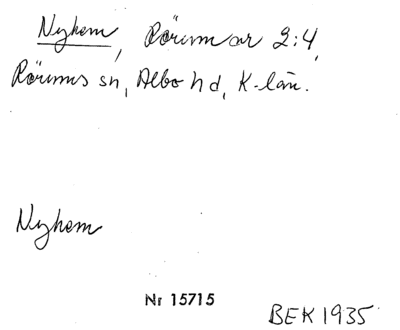 Nyhem, Rörum ar 2:4,
Rörums sn, Albo hd, K-län.
Nyhem
Nr 15715
BEK 1935